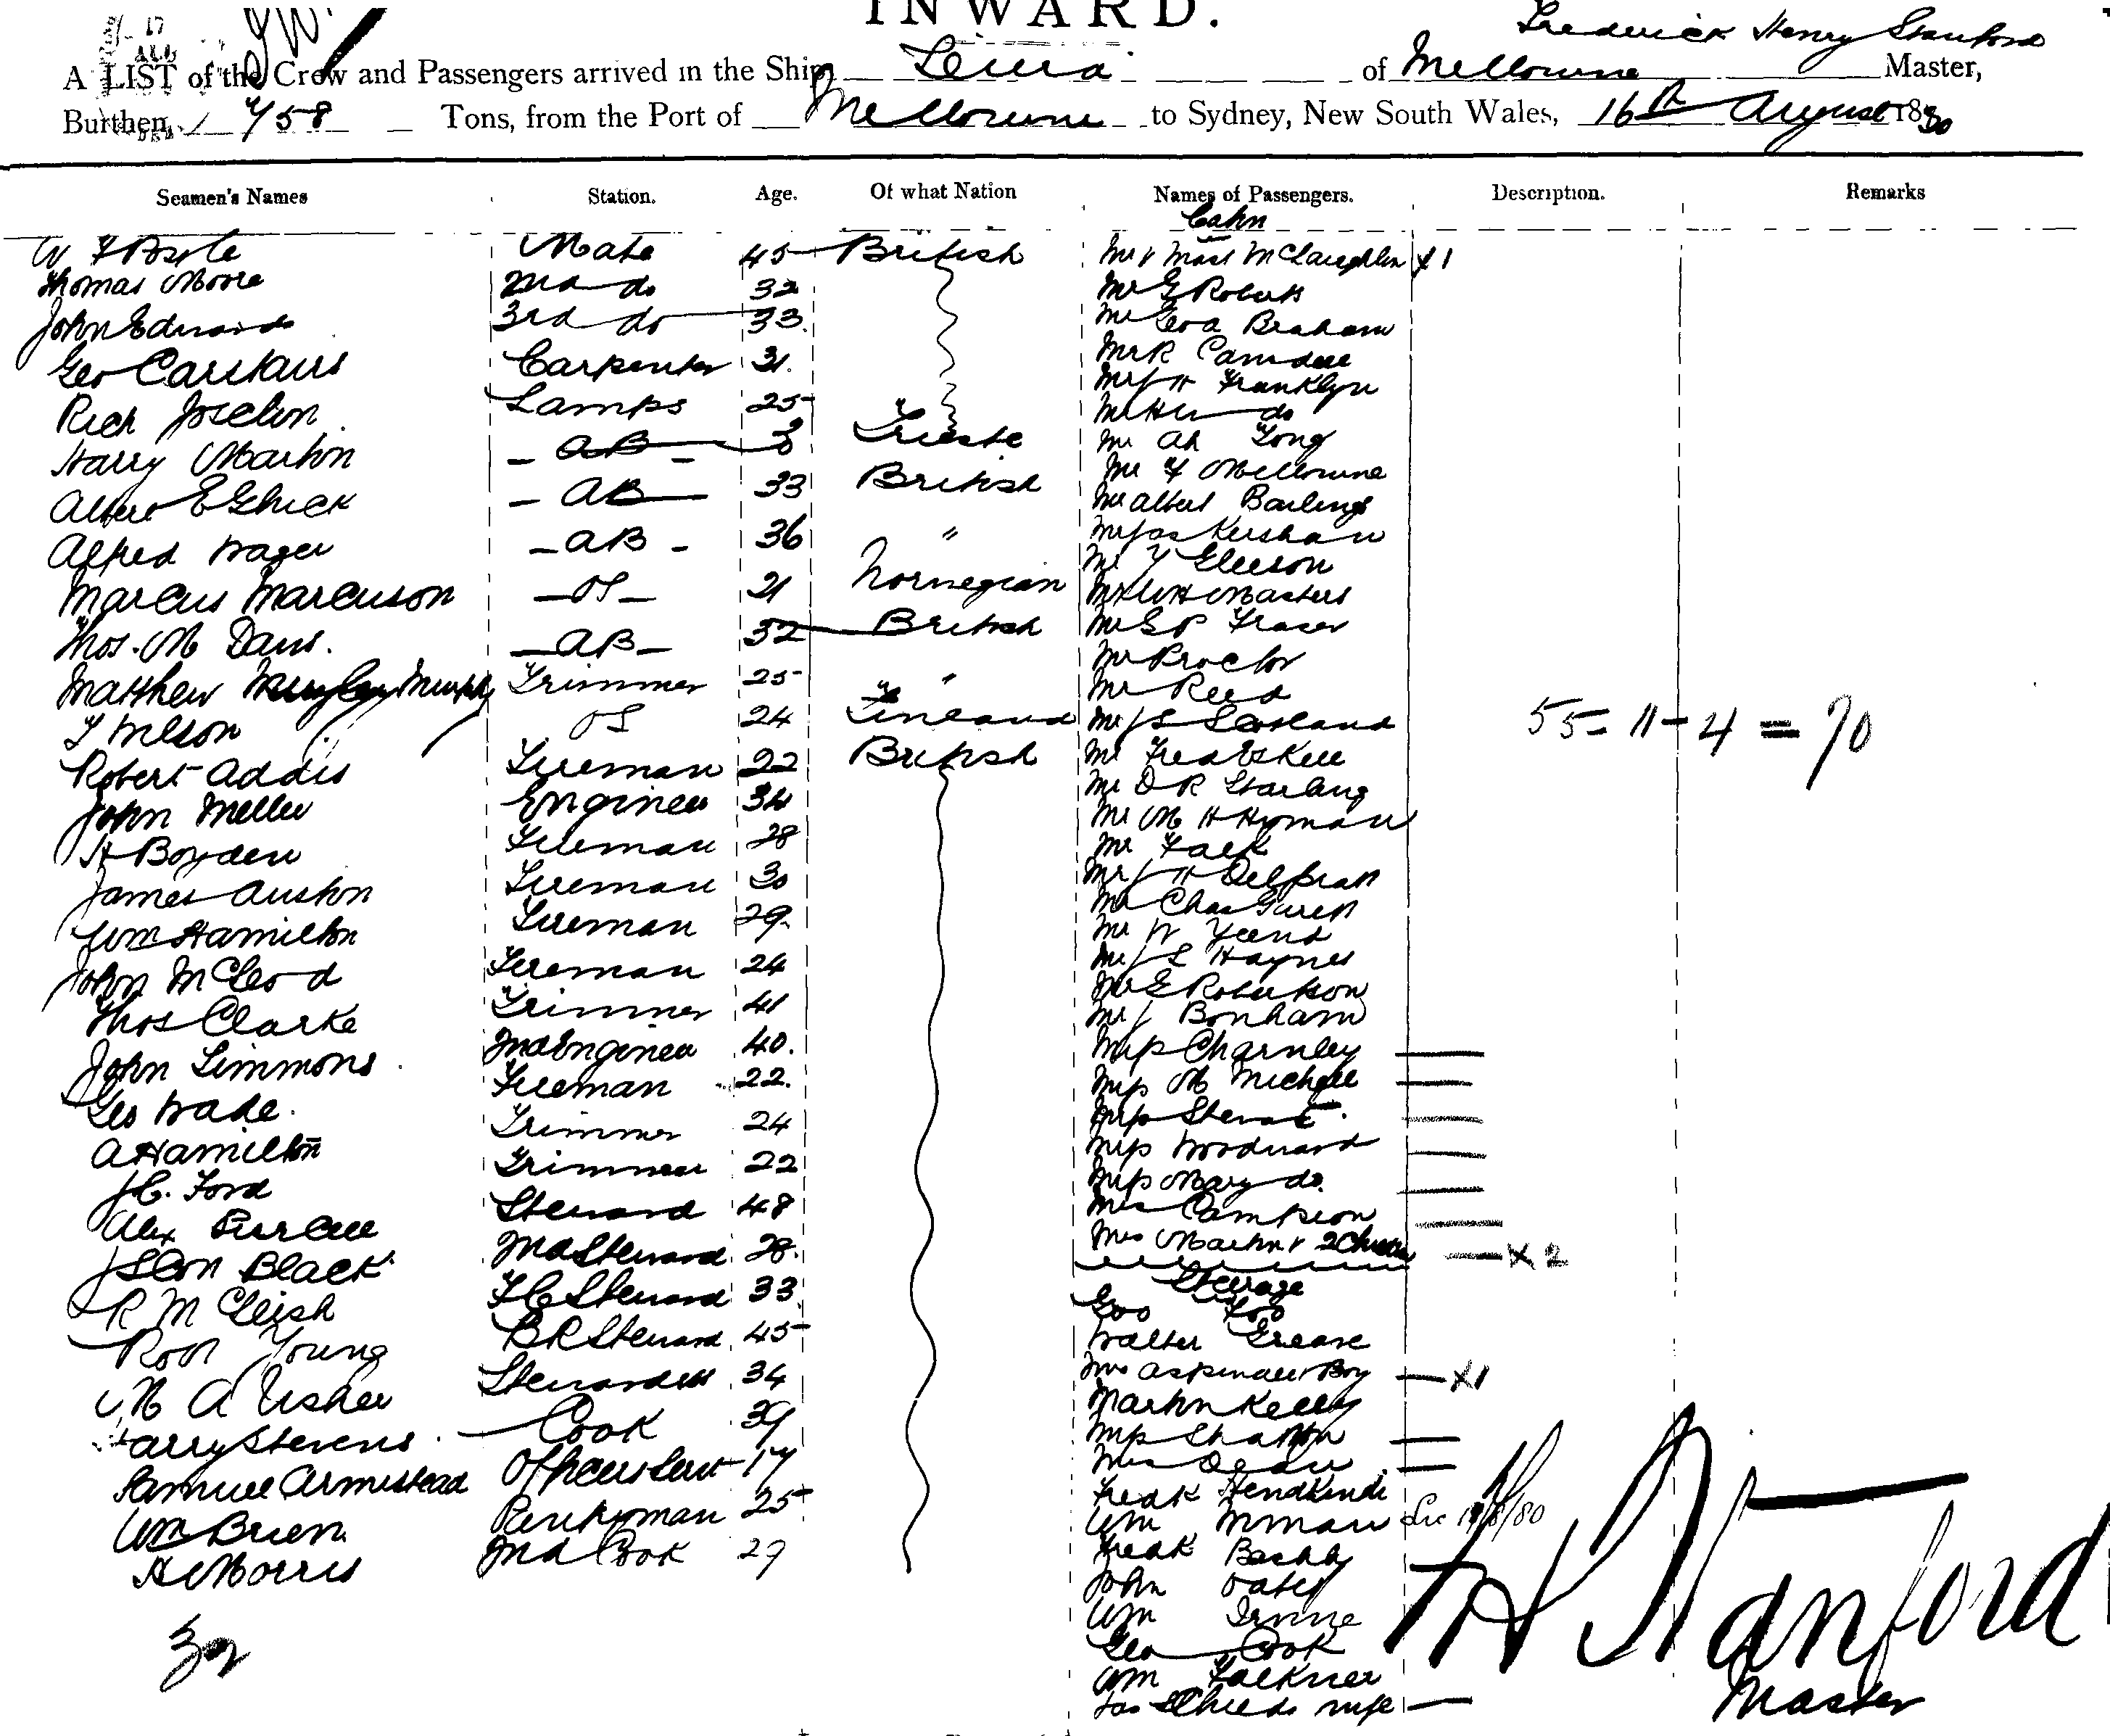 INWARD.
17
AUG
Frederick Henry Stanford
A LIST of the Crew and Passengers arrived in the Ship of Melbourne Master,
Burthen, 758 Tons, from the Port of Melbourne to Sydney, New South Wales, 16th August 1880
Seamen's Names Station. Age. Of what Nation Names of Passengers. Description. Remarks
Cabin
Mate 45 British Mr & Mast McLaughlin X 1
Thomas Moore 2nd do 32 Mr G Roberts
John Edwards 3rd do 33. Mr Braham
Geo Carstairs Carpenter 31. Mr R
Rich Joscelin Lamps 25 Mr J H Franklyn
do
Harry Martin - AB - Trieste Mr Ah Tong
Alfred - AB - 33 British Mr F Melbourne
Mr Albert
Alfred Wager - AB - 36 " Mr Jas Kershaw
Mr Gleeson
Marcus Marcuson - OS - 21 Norwegian Mr W H Masters
Thos. M Davis. - AB - 32 British Mr Fraser
Mr Proctor
Matthew Murphy Trimmer 25 " Mr Reed
Wilson OS 24 Finland Mr 55 - 11 - 4 = 70
Robert Addis Fireman 22 British Mr Fred
John Meller Engineer 34 Mr D R Starling
H Boyden Fireman 28 Mr M H Hyman
Mr Falk
James Austin Fireman 30 Mr J H Delprat
Wm Hamilton Fireman 29. Mr Chas
Mr W Yeend
John McCleod Fireman 24 Mr J L Haynes
Thos Clarke Trimmer 41 Mr E Robertson
Mr J Bonham
John Simmons 2nd Engineer 40. Miss Charnley
Geo Wade. Fireman 22. Miss M Michell
A Hamilton Trimmer 24 Miss
J C. Ford Trimmer 22 Miss Woodward
Miss Mary do.
Alex Purcell Steward 48 Mrs Campion
Black 2nd Steward 28. Mrs Martin & 2 Children X 2
Steerage
R McLeish F C Steward 33
Robt Young B R Steward 45 Walter
M A Usher Stewardess 34 Mrs Aspinall & Boy X1
Harry Stevens Cook 39 Martin Kelly
Miss
Samuel Armistead Officers Servt 17 Mrs
Wm Brien Pantryman 25 Fredk
Wm 80
H Morris 2nd Cook 29 Fredk
John Oates
Wm Irvine
Geo Cook
Wm Falkner
wife
F H Stanford
Master